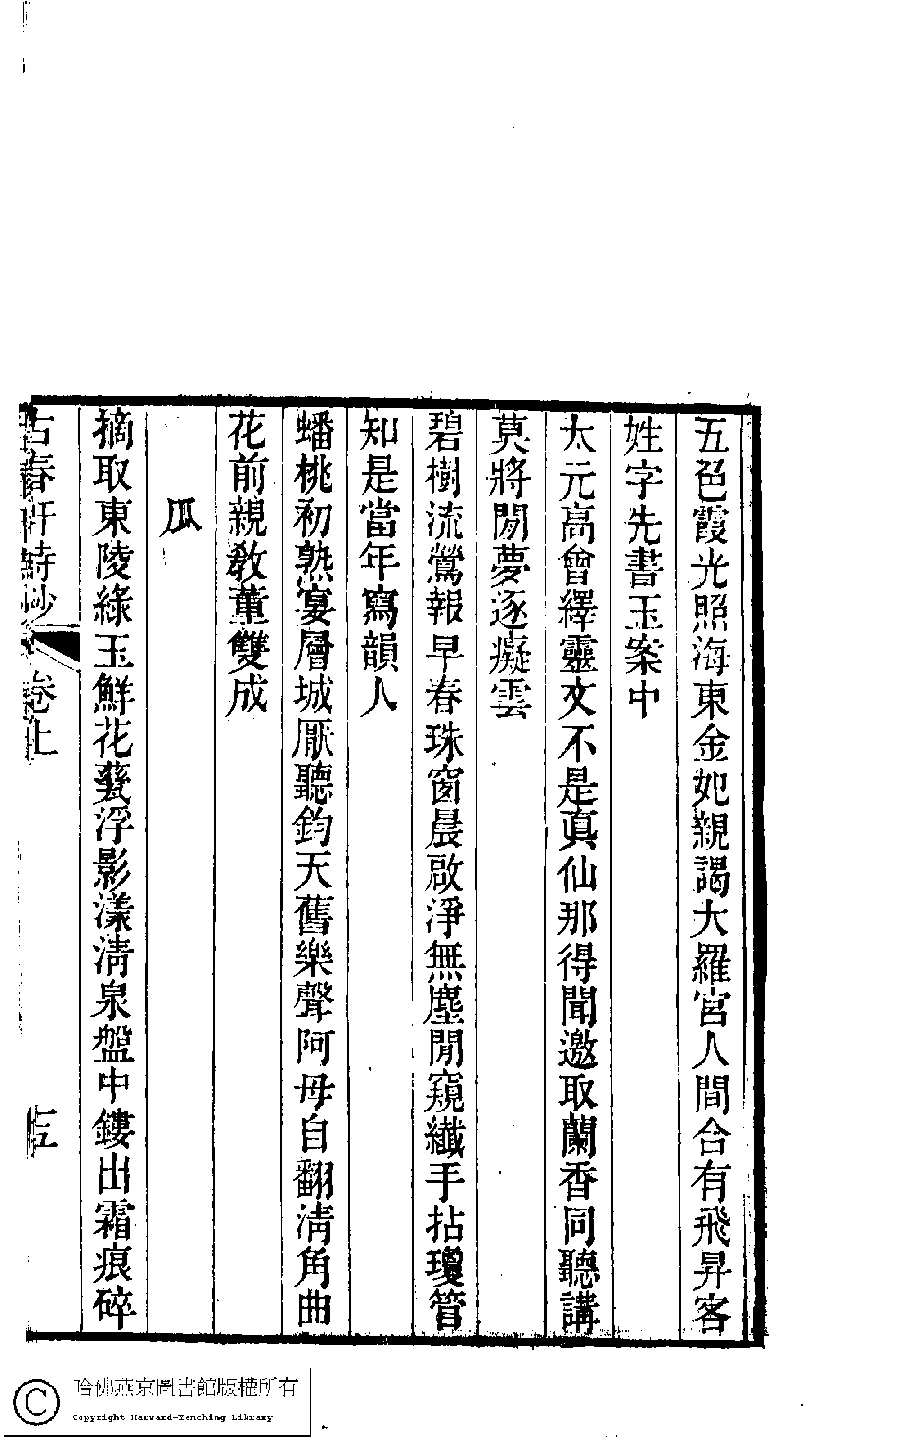 五色霞光照海東金妃親謁大羅宮人間合有飛昇客
姓字先書玉案中
太元高曾繹靈文不是真仙那得聞邀取蘭香同聽講
莫將閒夢逐癡雲
碧樹流鶯報早春珠窗晨啟淨無塵閒窺纖手拈瓊管
知是當年寫韻人
蟠桃初熟宴層城厭聽鈞天舊樂聲阿母自翻清角曲
花前親敎董雙成
瓜
摘取東陵綠玉鮮花甆浮影漾清泉盤中鏤出霜痕碎
古春軒詩鈔 卷上
哈佛燕京圖書館版權所有
Copyright Harvard-Yenching Library